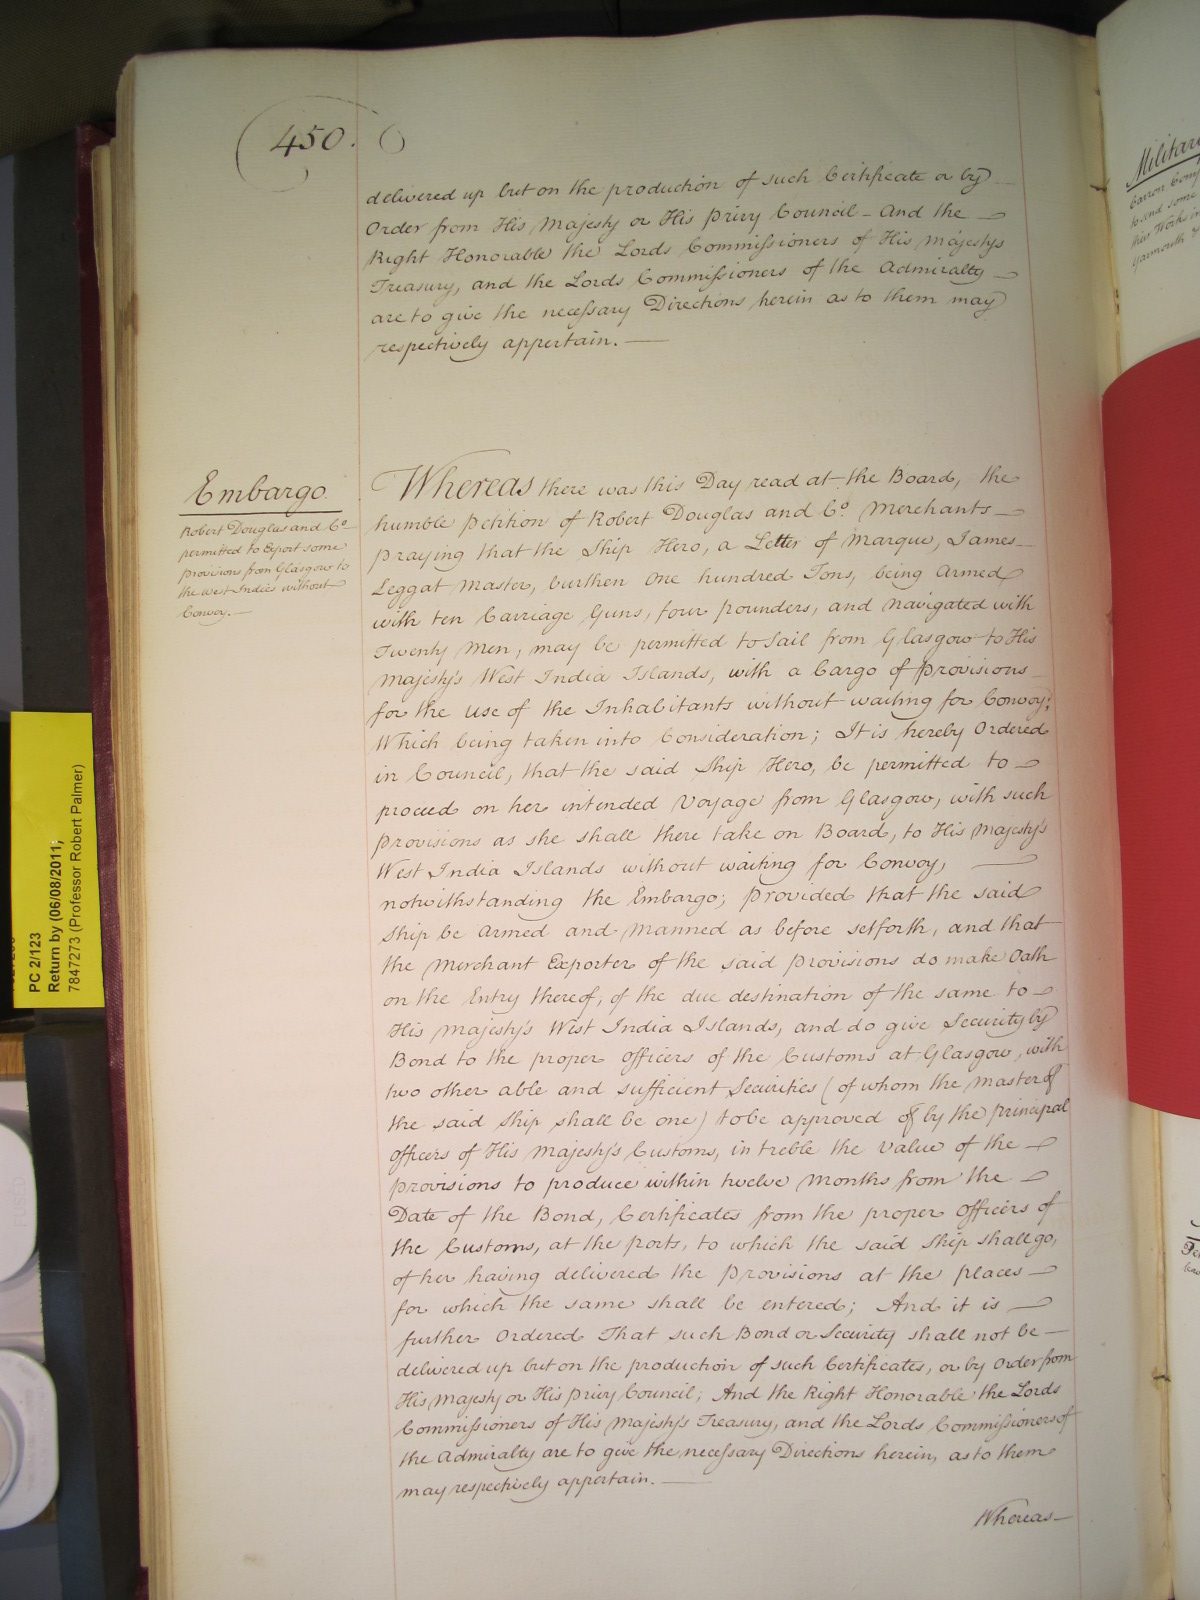 450.
delivered up but on the production of such Certificate or by
Order from His Majesty or His Privy Council – And the
Right Honorable the Lords Commissioners of His Majestys
Treasury, and the Lords Commissioners of the Admiralty
are to give the necessary Directions herein as to them may
respectively appertain.
Embargo.
Robert Douglas and Co.
permitted to Export some
Provisions from Glasgow to
the West Indies without
Convoy.
Whereas there was this Day read at the Board, the
humble Petition of Robert Douglas and Co. Merchants
praying that the Ship Hero, a Letter of Marque, James
Leggat Master, burthen One hundred Tons, being Armed
with ten Carriage Guns, four pounders, and navigated with
Twenty Men, may be permitted to Sail from Glasgow to His
Majesty's West India Islands, with a Cargo of Provisions
for the use of the Inhabitants without waiting for Convoy;
Which being taken into Consideration; It is hereby Ordered
in Council, that the said Ship Hero, be permitted to
proceed on her intended Voyage from Glasgow, with such
Provisions as she shall there take on Board, to His Majesty's
West India Islands without waiting for Convoy,
notwithstanding the Embargo; Provided that the said
Ship be Armed and Manned as before setforth, and that
the Merchant Exporter of the said Provisions do make Oath
on the Entry thereof, of the due destination of the same to
His Majesty's West India Islands, and do give Security by
Bond to the proper Officers of the Customs at Glasgow, with
two other able and sufficient Securities (of whom the Master of
the said Ship shall be one) to be approved of by the principal
Officers of His Majesty's Customs, in treble the Value of the
Provisions to produce within twelve Months from the
Date of the Bond, Certificates from the proper Officers of
the Customs, at the Ports, to which the said Ship shall go,
of her having delivered the Provisions at the places
for which the same shall be entered; And it is
further Ordered That such Bond or Security shall not be
delivered up but on the production of such Certificates, or by Order from
His Majesty or His Privy Council; And the Right Honorable the Lords
Commissioners of His Majesty's Treasury, and the Lords Commissioners of
the Admiralty are to give the necessary Directions herein, as to them
may respectively appertain.
Whereas
PC 2/123
Return by (06/08/2011;
7847273 (Professor Robert Palmer)